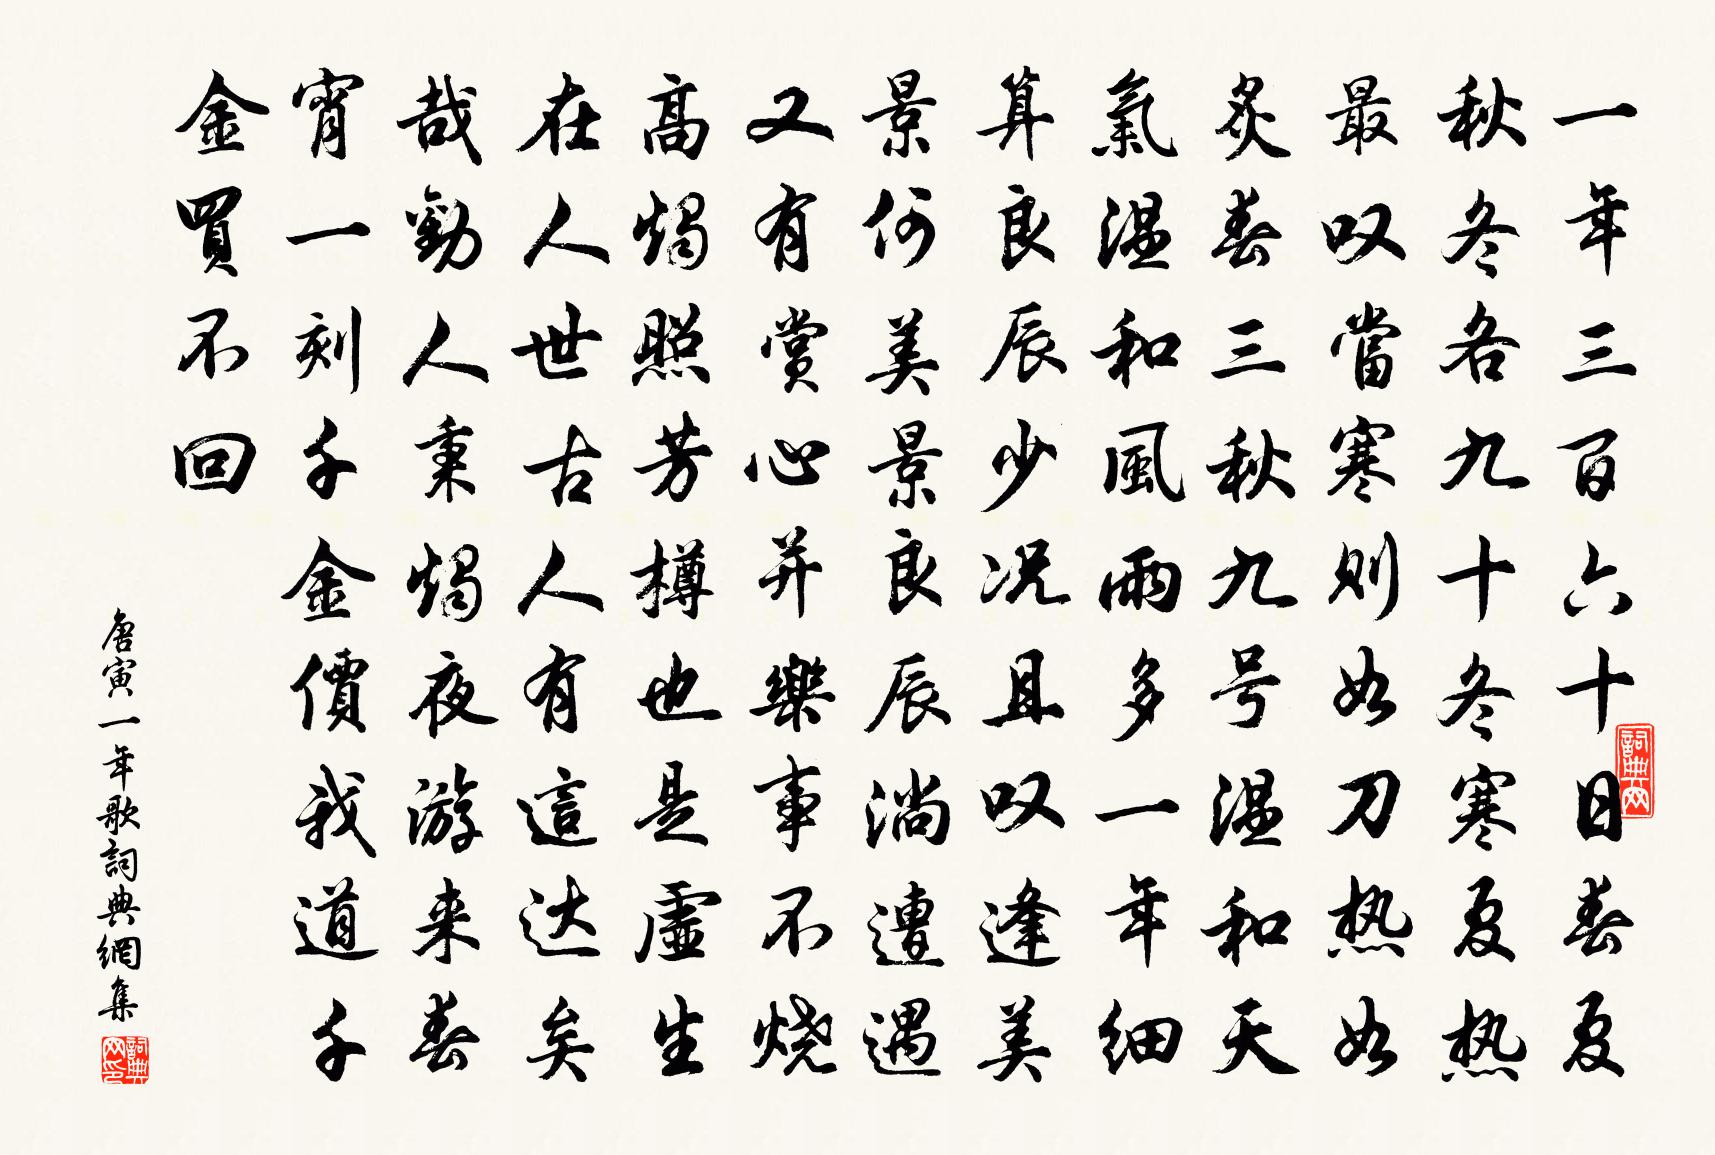 一年三百六十日春夏
秋冬各九十冬寒夏热
最叹當寒则如刀热如
炙春三秋九号温和天
氣温和風雨多一年细
算良辰少况且叹逢美
景何美景良辰淌遭遇
又有赏心并樂事不烧
高燭照芳樽也是虚生
在人世古人有這达矣
哉勸人秉燭夜游来春
宵一刻千金價我道千
金買不回
唐寅一年歌詞典網集
詞典网
詞典网印